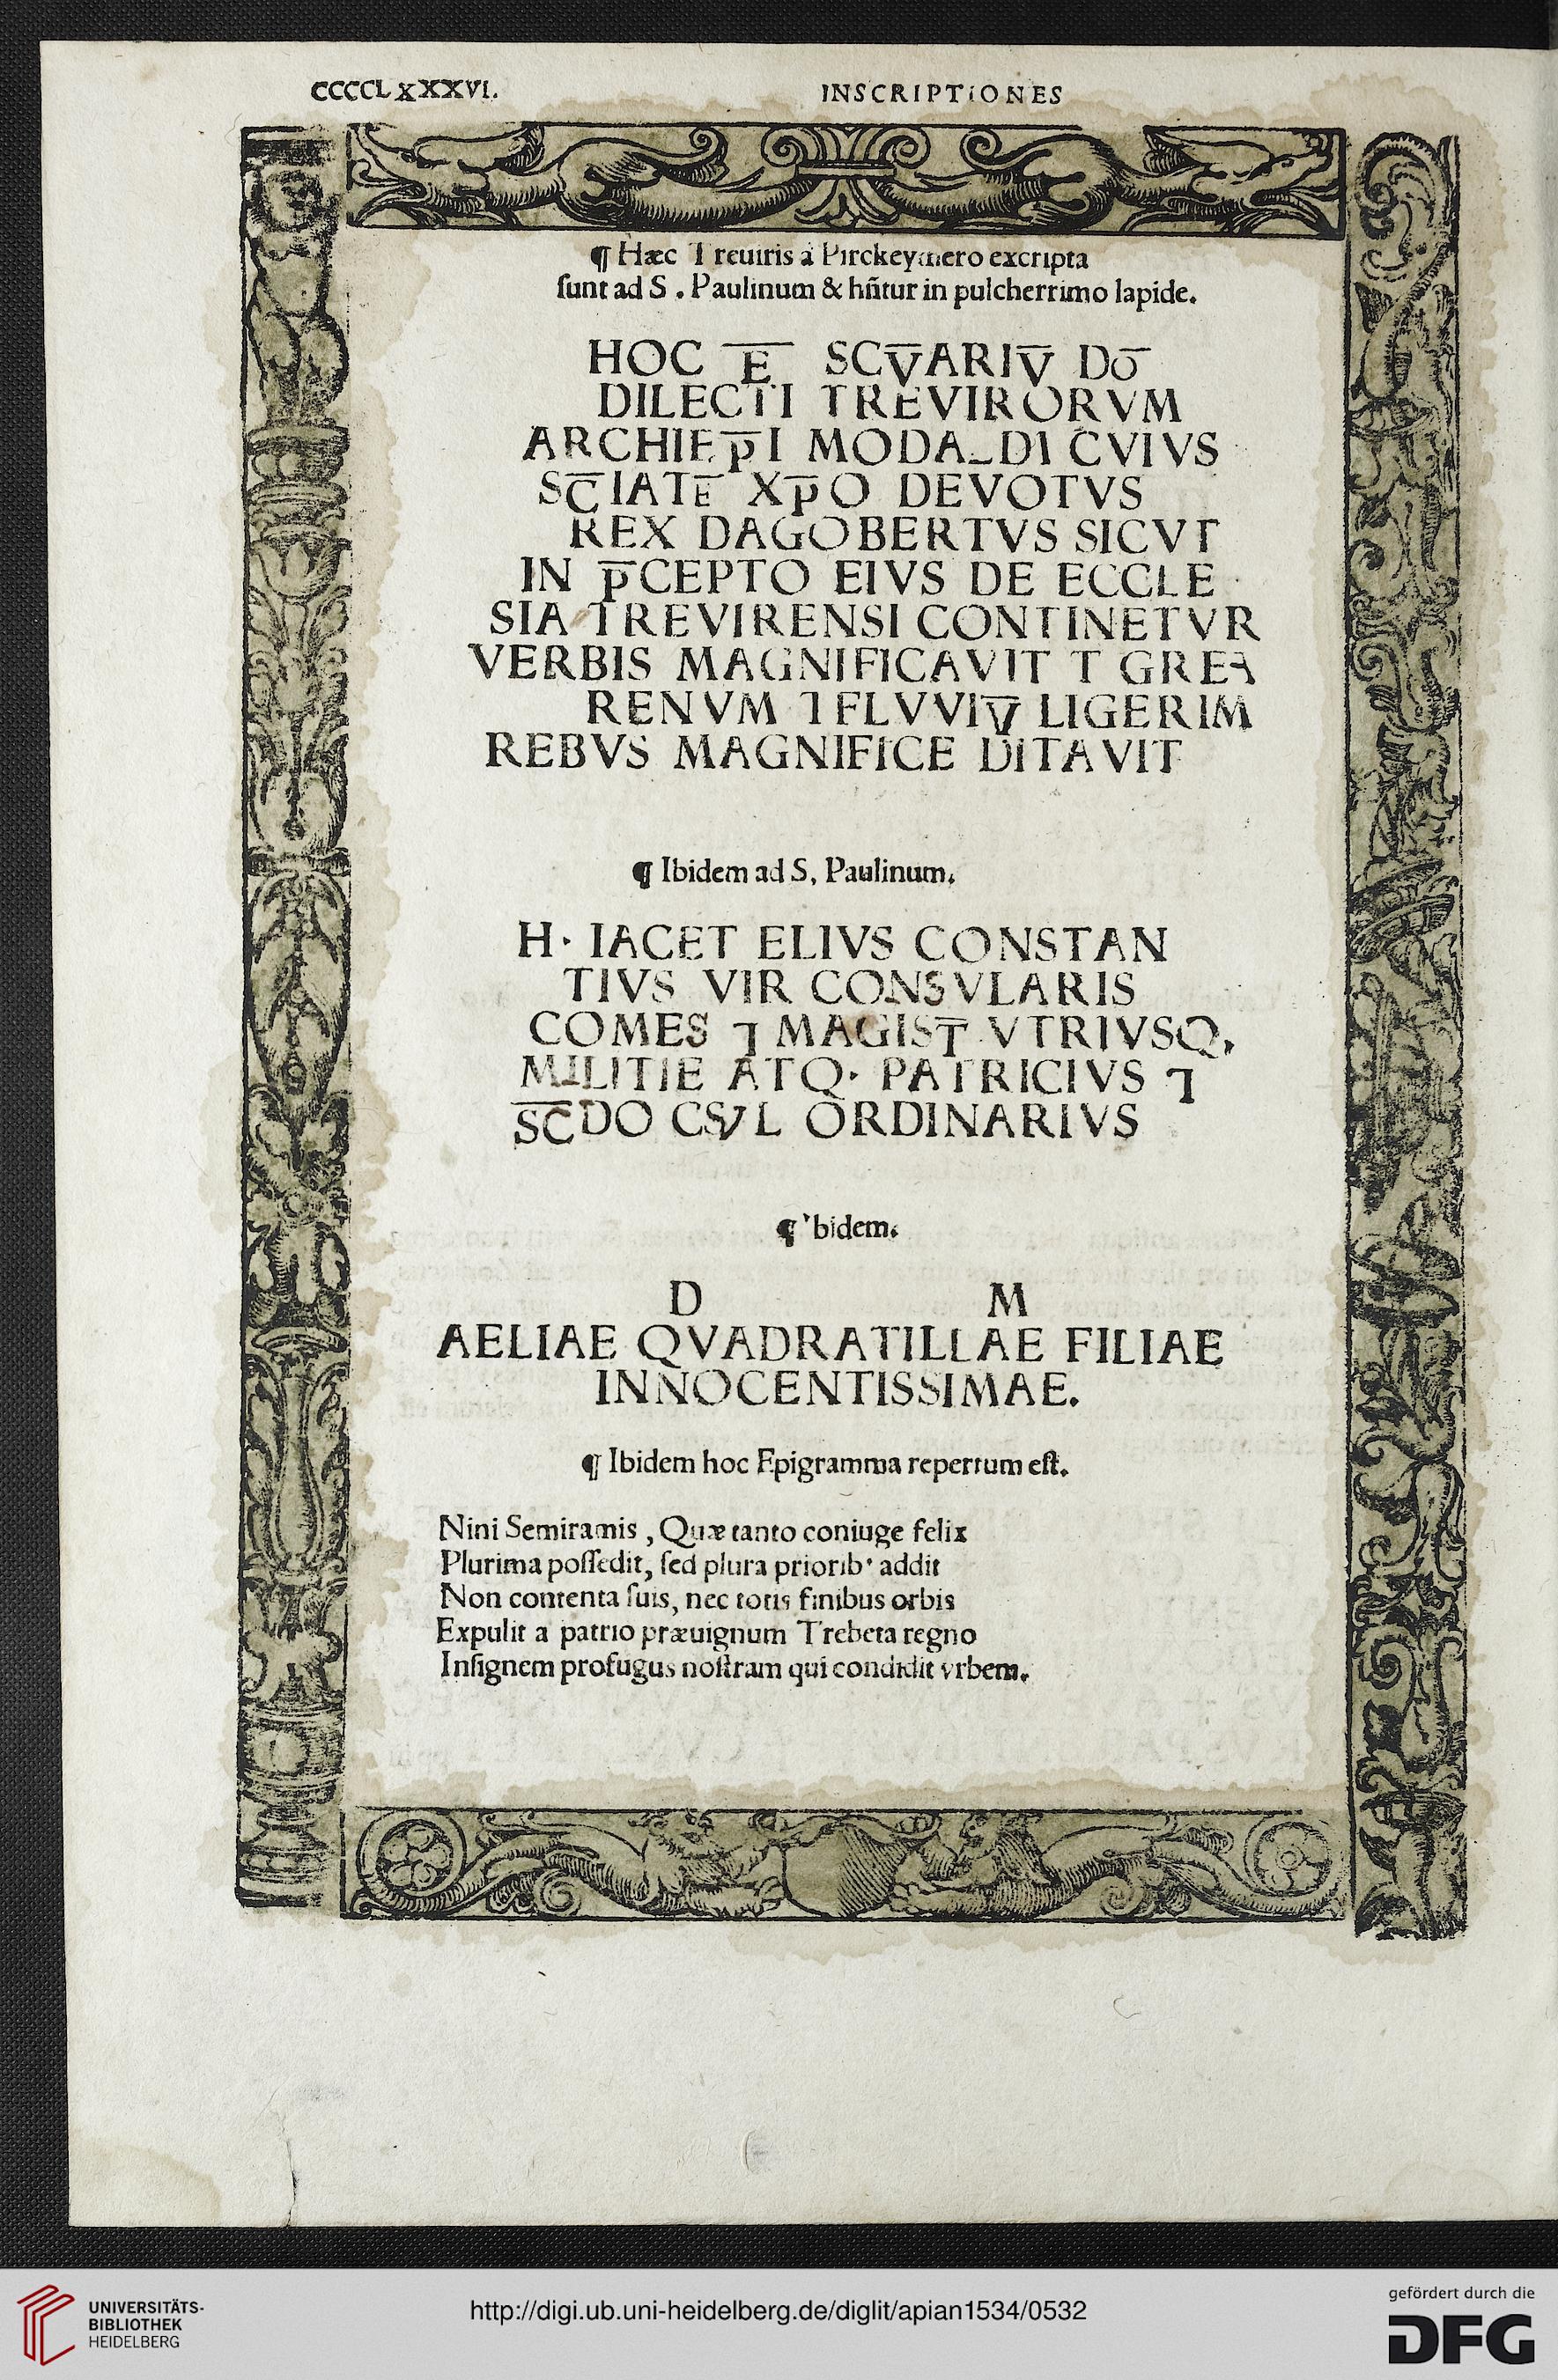 CCCCLXXXVI.
INSCRIPTIONES
¶ Hæc Treuiris a Pirckeymero excripta
ſunt ad S . Paulinum & hñtur in pulcherrimo lapide.
HOC E̅ SCV̅ARIV̅ DO̅
DILECTI TREVIRORVM
ARCHIEP̅I MODA_DI CVIVS
SC̅IATE̅ XP̅O DEVOTVS
REX DAGOBERTVS SICVT
IN P̅CEPTO EIVS DE ECCLE
SIA TREVIRENSI CONTINETVR
VERBIS MAGNIFICAVIT T GREA
RENVM ⁊ FLVVIV̅ LIGERIM
REBVS MAGNIFICE DITAVIT
¶ Ibidem ad S, Paulinum.
H· IACET ELIVS CONSTAN
TIVS VIR CONSVLARIS
COMES ⁊ MAGIST̅ VTRIVSQ,
MILITIE ATQ· PATRICIVS ⁊
S̅C̅DO CSVL ORDINARIVS
¶ 'bidem.
D M
AELIAE QVADRATILLAE FILIAE
INNOCENTISSIMAE.
¶ Ibidem hoc Epigramma repertum eſt.
Nini Semiramis , Quæ tanto coniuge felix
Plurima poſſedit, ſed plura priorib' addit
Non contenta ſuis, nec totis finibus orbis
Expulit a patrio præuignum Trebeta regno
Inſignem profugus noſtram qui condidit vrbem.
UNIVERSITÄTS-
BIBLIOTHEK
HEIDELBERG
http://digi.ub.uni-heidelberg.de/diglit/apian1534/0532
gefördert durch die
DFG